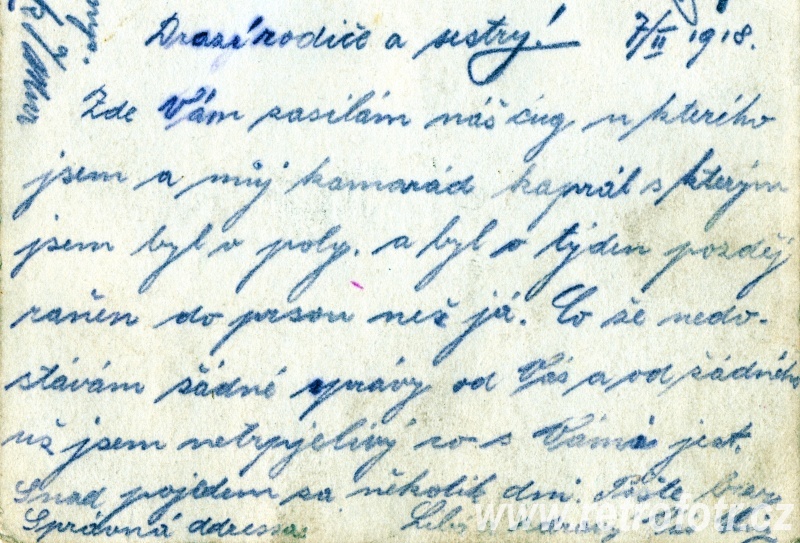 Drazí rodiče a sestry! 7/II 1918.
Zde Vám zasilám náš cug u kterého
jsem a můj kamarád kaprál s kterým
jsem byl v poly. a byl o týden pozděj
raňen do prsou než já. Co že nedo-
stávám žádné zprávy od Vás a od žádného
už jsem netrpjelivý co s Váma jest.
Snad pojedem za několik dní. Pište
Správná ddressa:
www.retrofotr.cz